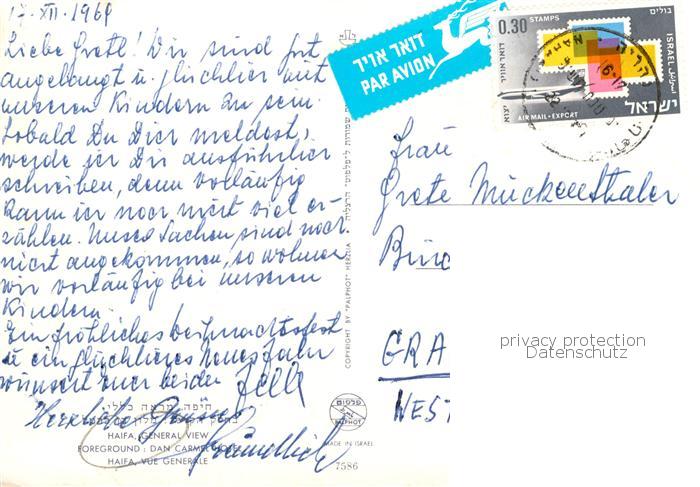 17-XII-1969
Liebe Gretl! Wir sind gut
angelangt u. glücklich mit
unseren Kindern zu sein.
Sobald Du Dich meldest,
werde ich Dir ausführlicher
schreiben, denn vorläufig
kann ich noch nicht viel er-
zählen. Unsere Sachen sind noch
nicht angekommen, so wohnen
wir vorläufig bei unseren
Kindern.
Ein fröhliches Weihnachtsfest
u ein glückliches neues Jahr
wünscht Euer beider
Herzliche Grüsse
חיפה, מראה כללי
HAIFA, GENERAL VIEW
FOREGROUND: DAN CARMEL HOTEL
HAIFA, VUE GENERALE
COPYRIGHT BY "PALPHOT" HERZLIA
פלפוט
PALPHOT
MADE IN ISRAEL
7586
דואר אויר
PAR AVION
0.30 STAMPS
בולים
ISRAEL
اسرائيل
דואר אויר
יצוא
AIR MAIL · EXPORT
ישראל
Frau
Grete Muckenthaler
GRA
WEST
privacy protection
Datenschutz